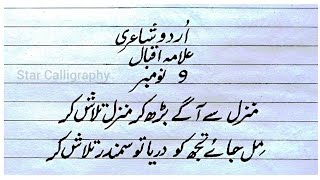 اُردو شاعری
علامہ اقبال
9 نومبر
Star Calligraphy
منزل سے آگے بڑھ کر منزل تلاش کر
مِل جائے تجھ کو دریا تو سمندر تلاش کر